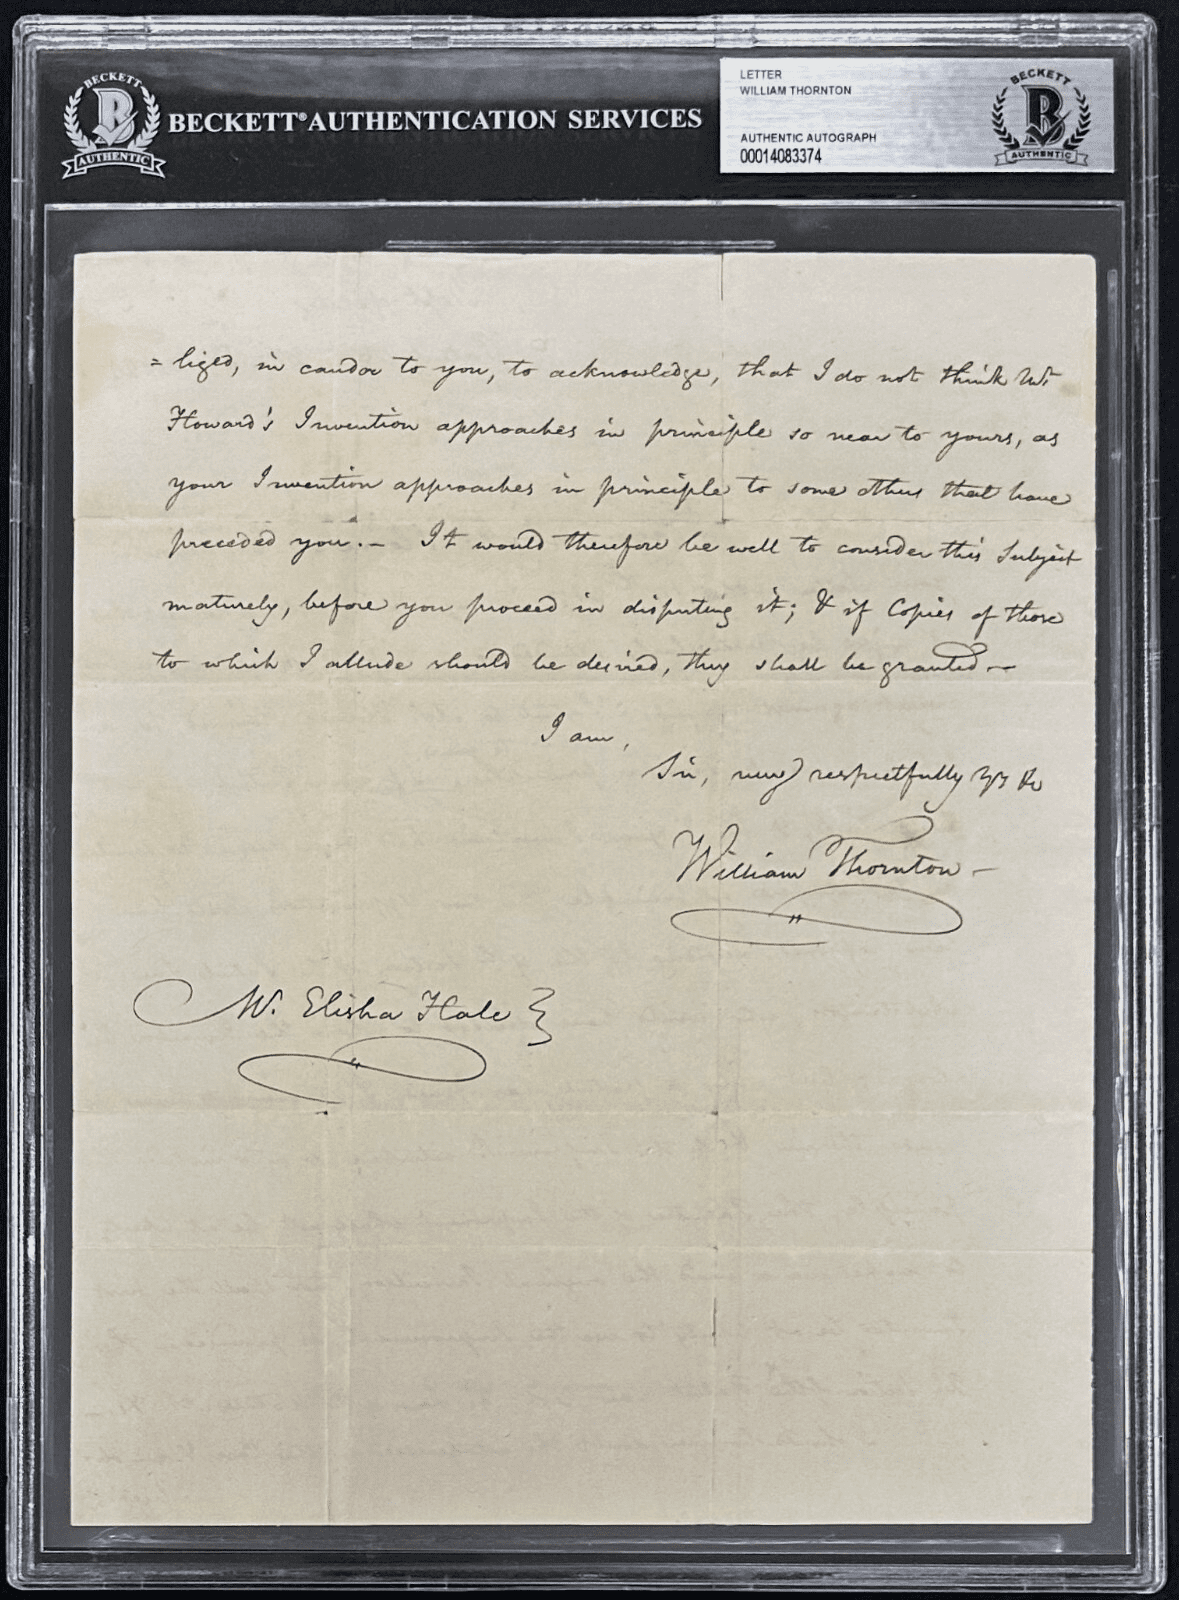 BECKETT
AUTHENTIC
BECKETT® AUTHENTICATION SERVICES
LETTER
WILLIAM THORNTON
AUTHENTIC AUTOGRAPH
00014083374
BECKETT
AUTHENTIC
=liged, in candor to you, to acknowledge, that I do not think Mr.
Howard's Invention approaches in principle so near to yours, as
your Invention approaches in principle to some others that have
preceded you.— It would therefore be well to consider this Subject
maturely, before you proceed in disputing it; & if Copies of those
to which I allude should be desired, they shall be granted.—
I am,
Sir, very respectfully yrs &c
William Thornton —
Mr. Elisha Hale }